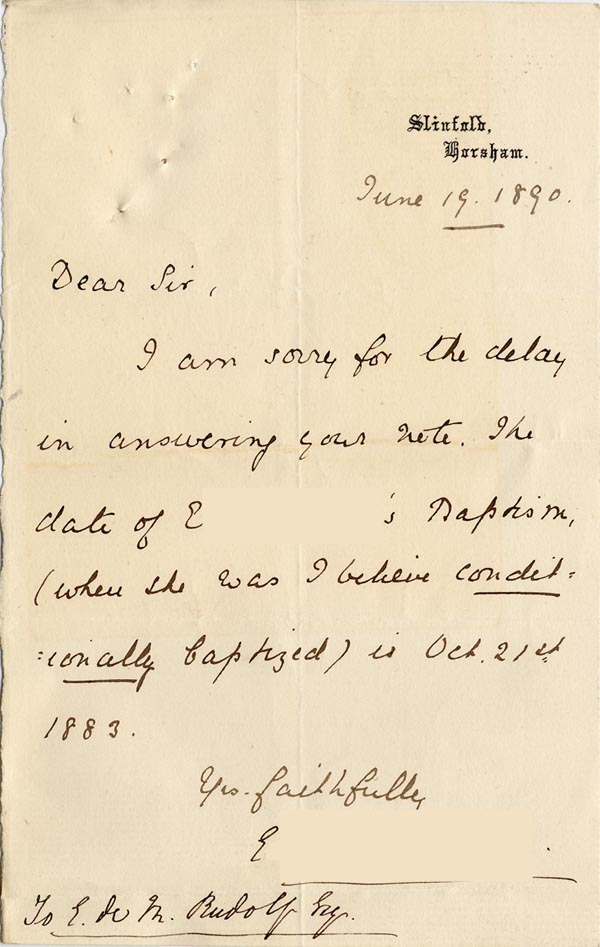 Slinfold,
Horsham.
June 19. 1890.
Dear Sir,
I am sorry for the delay
in answering your note. The
date of E 's Baptism,
(when she was I believe condit=
=ionally baptized) is Oct. 21st
1883.
Yrs. faithfully
E
To E. de M. Rudolf Esq.